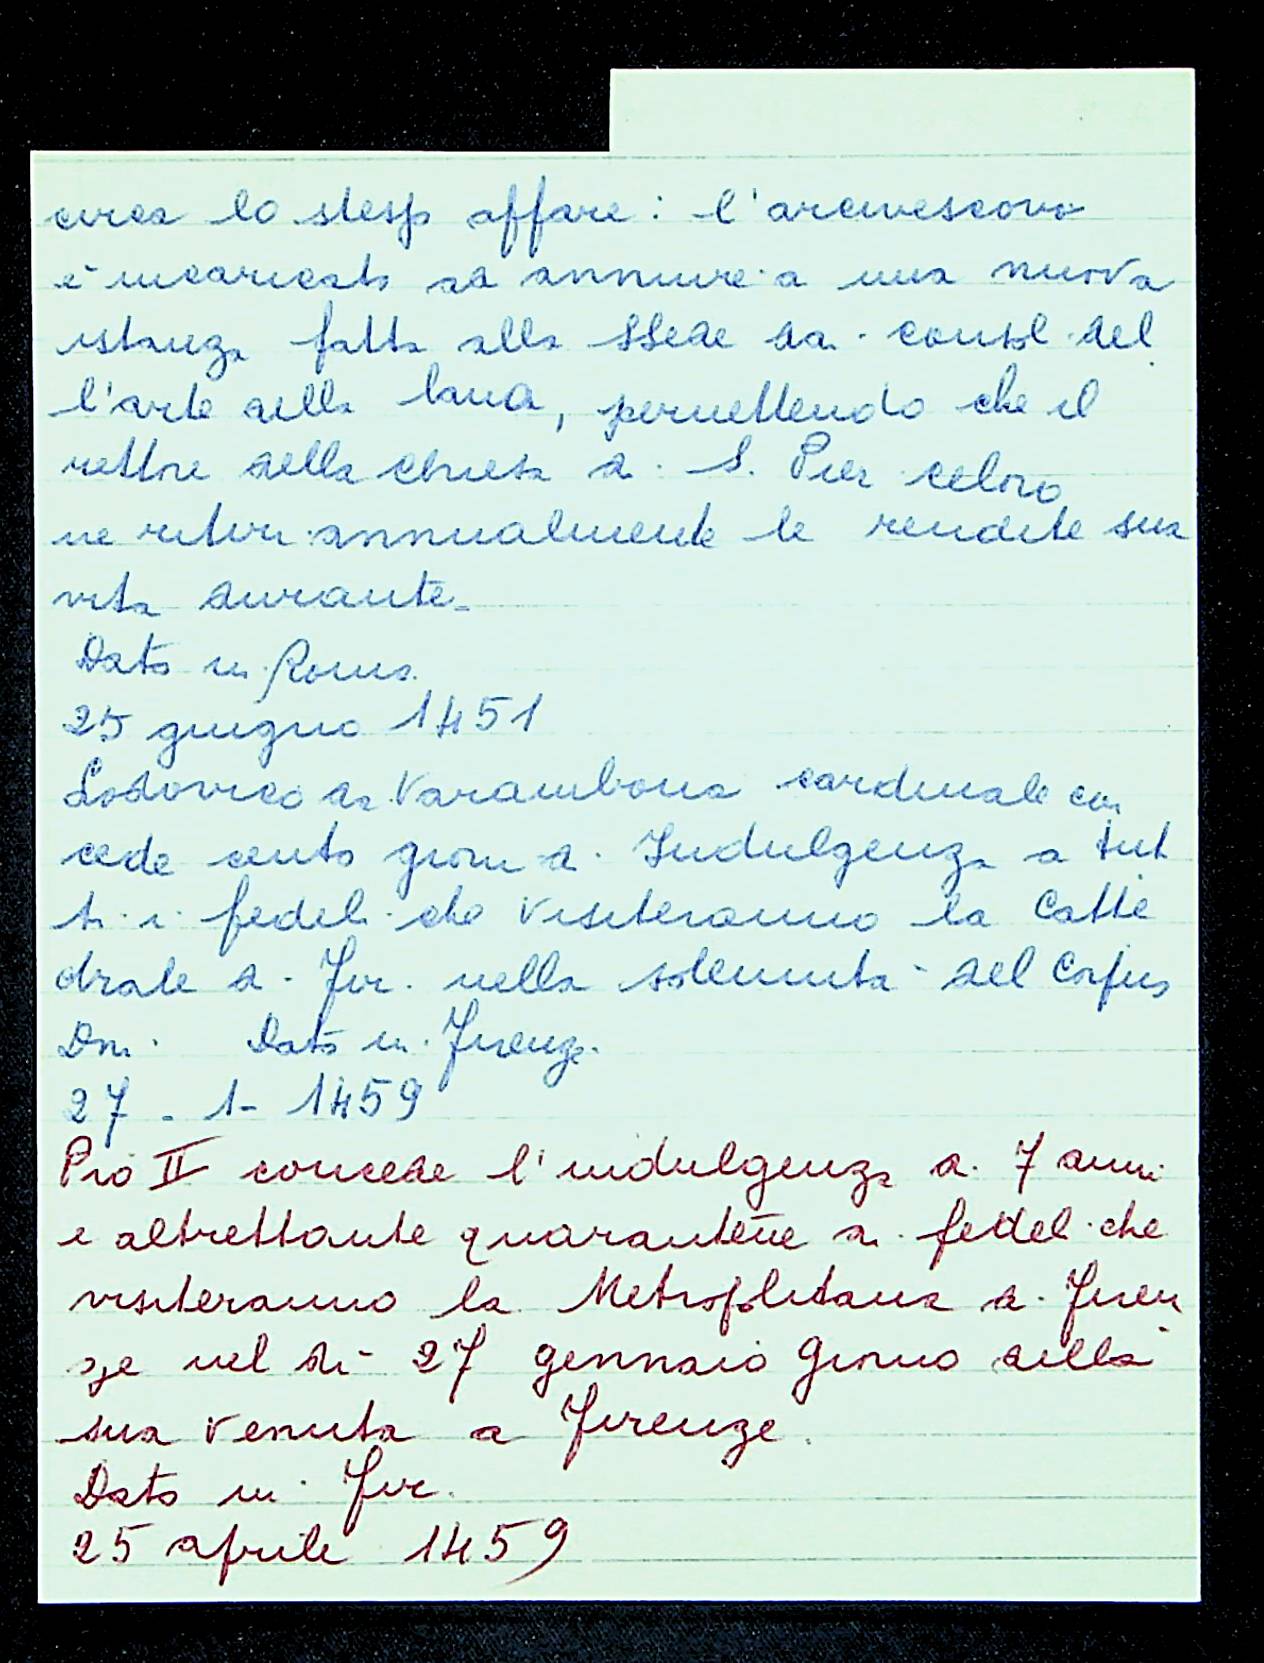 circa lo stesso affare: l'arcivescovo
è incaricato ad annuire a una nuova
istanza fatta alla SSede dai consoli del
l'arte della lana, permettendo che il
rettore della chiesa di S. Pier celoro
ne ritiri annualmente le rendite sua
vita durante.
Dato in Roma.
25 giugno 1451
Lodovico da Varambona cardinale con
cede cento giorni di Indulgenza a tut
ti i fedeli che visiteranno la Catte
drale di Fir. nella solennità del Corpus
Dni. Dato in Firenze.
27 - 1 - 1459
Pio II concede l'indulgenza di 7 anni
e altrettante quarantene ai fedeli che
visiteranno la Metropolitana di Firen
ze nel dì 27 gennaio giorno della
sua venuta a Firenze.
Dato in Fir.
25 aprile 1459